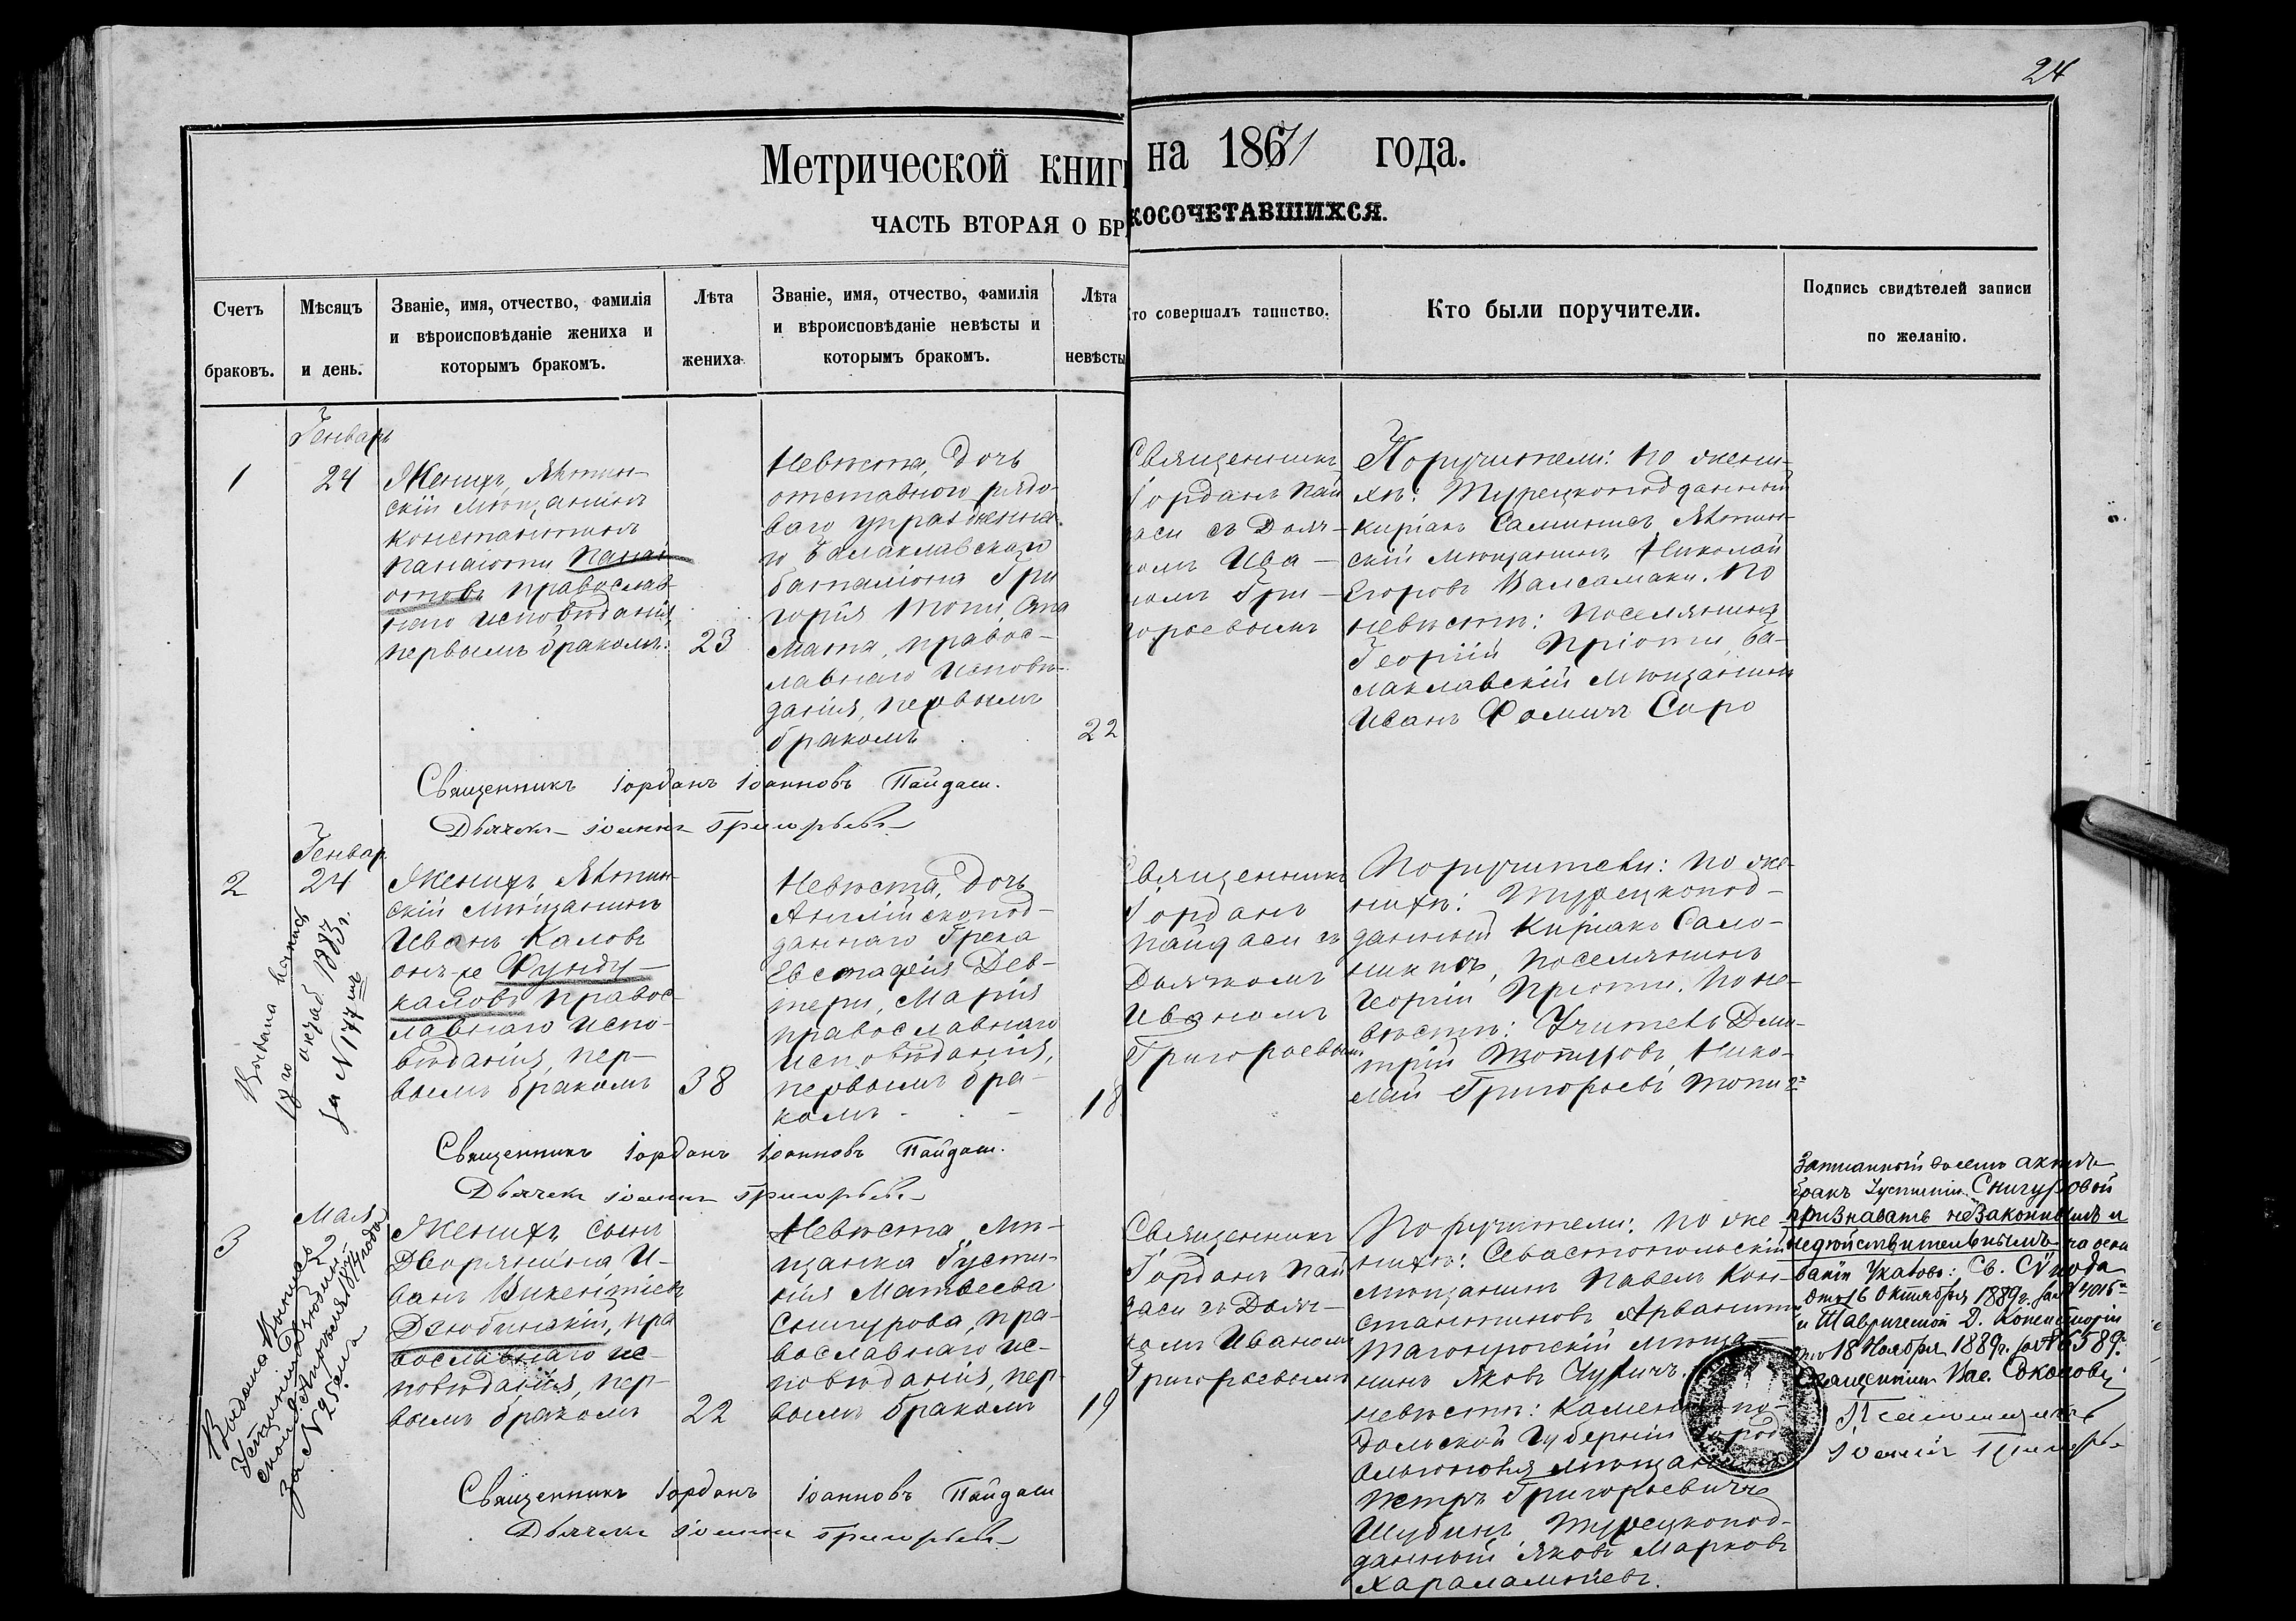 24
Метрической книг на 1871 года.
ЧАСТЬ ВТОРАЯ О БР КОСОЧЕТАВШИХСЯ.
Счетъ браковъ.
Мѣсяцъ и день.
Званіе, имя, отчество, фамилія
и вѣроисповѣданіе жениха и
которымъ бракомъ.
Лѣта жениха
Званіе, имя, отчество, фамилія
и вѣроисповѣданіе невѣсты и
которымъ бракомъ.
Лѣта невѣсты
то совершалъ таинство.
Кто были поручители.
Подпись свидѣтелей записи
по желанію.
1
Генварь
24
Женихъ, Ялтин-
скій мѣщанинъ
Константинъ
Панаіоти Панаі-
отовъ православ-
наго исповѣданія
первымъ бракомъ.
23
Невѣста, дочь
отставного рядо-
ваго упраздненна-
го Балаклавскаго
баталіона Гри
горія Топи,
правос-
лавнаго исповѣ-
данія, первымъ
бракомъ
22
Священникъ
Іорданъ Пай
даси съ Дьяч-
комъ Ива-
номъ Гри-
горьевымъ
Поручители: по жени-
хѣ: Турецкоподданный
Киріакъ Ялтин-
скій мѣщанинъ Николай
Егоровъ Валсамаки. По
невѣстѣ: поселянинъ
Георгій Пріоти, ба-
лаклавскій мѣщанинъ
Иванъ Фомичъ Сиро
Священникъ Іорданъ Іоанновъ Пайдаси.
Дьячекъ Іоаннъ Григорьевъ
2
Генвар
24
Женихъ, Ялтин-
скій мѣщанинъ
Иванъ Каловъ
онъ-же Фунду-
каловъ правос-
лавнаго испо-
вѣданія, пер-
вымъ бракомъ
38
Невѣста, дочь
Англійскопод-
даннаго Грека
Евстафія Дев-
тери, Марія
православнаго
исповѣданія,
первымъ бра-
комъ
18
Священникъ
Іорданъ
Пайдаси съ
Дьячкомъ
Иваномъ
Григорьевымъ
Поручители: по же-
нихѣ: Турецкопод-
данный Киріакъ
поселянинъ
Георгій Пріоти. По не-
вѣстѣ: Учитель Дми-
трій Топузовъ, Нико-
лай Григорьевъ Топи
Выдана выпись
18го 1883 г.
за N 177мъ
Священникъ Іорданъ Іоанновъ Пайдаси.
Дьячекъ Іоаннъ Григорьевъ
3
Мая
2
Женихъ сынъ
Дворянина И-
ванъ Викентіевъ
Дзюбинскій, пра
вославнаго ис-
повѣданія, пер-
вымъ бракомъ
22
Невѣста, мѣ-
щанка Густи-
нія Матвеева
Снигурова, пра-
вославнаго ис-
повѣданія, пер-
вымъ бракомъ
19
Священникъ
Іорданъ Пай
даси съ Дьяч-
комъ Иваномъ
Григорьевымъ
Поручители: по же-
нихѣ: Севастопольскій
мѣщанинъ Павелъ Кон-
стантиновъ Арванити
Таганрогскій мѣща-
нинъ Яковъ
невѣстѣ:
дольской Губерніи
мѣщанинъ
Петръ Григорьевичъ
Шубинъ, Турецкопод-
данный Яковъ Марковъ
Харалампіевъ.
бракъ Густиніи Снигуровой
признавать незаконнымъ и
недѣйствительнымъ на осно
ваніи Указовъ: Св. Синода
отъ 16 Октября 1889 г. за N
и Таврической Д. Консисторіи
отъ 18 Ноября 1889 г. за N 6589.
Священникъ Вас. Соколовъ
Псаломщикъ
Іоаннъ Григорь
Выдана выпись
за N 25
Священникъ Іорданъ Іоанновъ Пайдаси
Дьячекъ Іоаннъ Григорьевъ